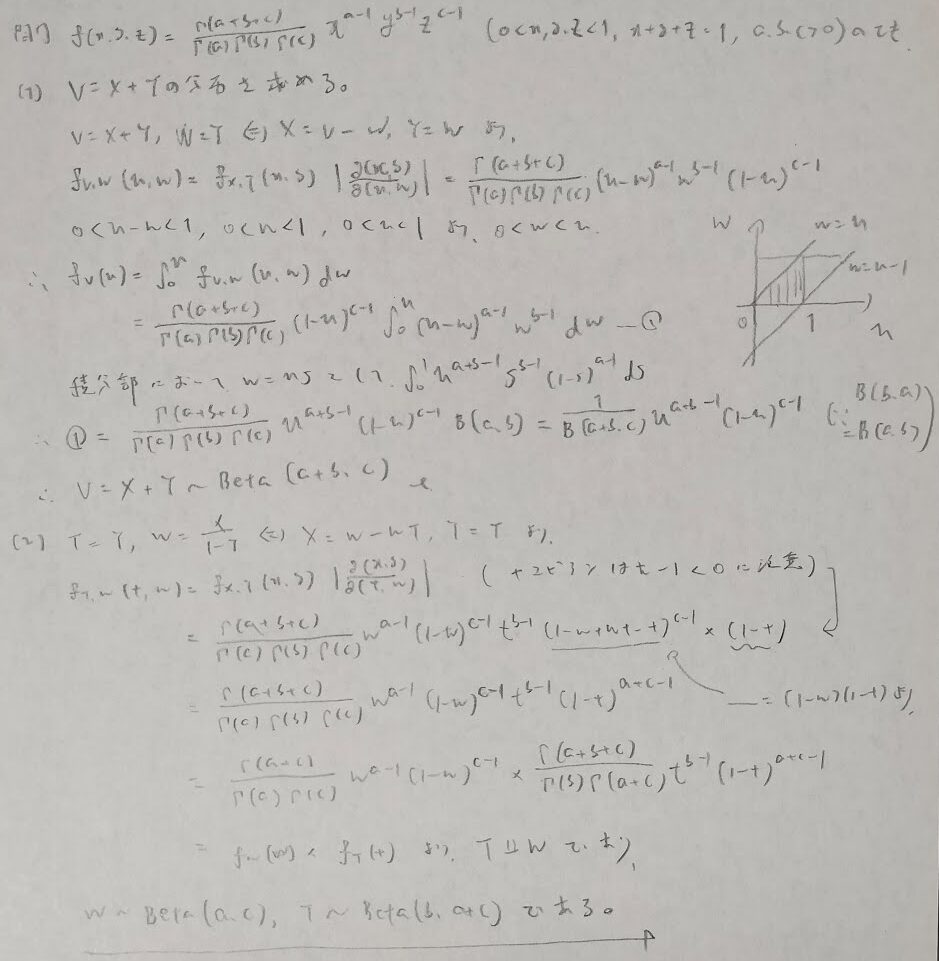 問7 f(x.y.z) = Γ(a+b+c)/Γ(a)Γ(b)Γ(c) x^{a-1} y^{b-1} z^{c-1} (0<x,y.z<1, x+y+z=1, a.b.c>0) のとき
(1) V=X+Yの分布を求める。
V=X+Y, W=Y ⇔ X=V-W, Y=W より,
f_{V,W}(u,w) = f_{X,Y}(x.y) |∂(x,y)/∂(u,w)| = Γ(a+b+c)/Γ(a)Γ(b)Γ(c) (u-w)^{a-1} w^{b-1} (1-u)^{c-1}
0<u-w<1, 0<w<1, 0<u<1 より, 0<w<u.
W w=u w=u-1 0 1 u
∴ f_V(u) = ∫_0^u f_{V,W}(u,w) dw
= Γ(a+b+c)/Γ(a)Γ(b)Γ(c) (1-u)^{c-1} ∫_0^u (u-w)^{a-1} w^{b-1} dw ―①
積分部において w=us として, ∫_0^1 u^{a+b-1} s^{b-1} (1-s)^{a-1} ds
∴ ① = Γ(a+b+c)/Γ(a)Γ(b)Γ(c) u^{a+b-1} (1-u)^{c-1} B(a,b) = 1/B(a+b.c) u^{a+b-1} (1-u)^{c-1} (∵ B(b,a) = B(a,b))
∴ V=X+Y ~ Beta(a+b, c)
(2) T=Y, W=X/(1-Y) ⇔ X=W-WT, Y=T より,
f_{T,W}(t,w) = f_{X,Y}(x.y) |∂(x.y)/∂(t,w)| (+ t-1<0 に注意)
= Γ(a+b+c)/Γ(a)Γ(b)Γ(c) w^{a-1} (1-t)^{a-1} t^{b-1} (1-w+wt-t)^{c-1} × (1-t)
= Γ(a+b+c)/Γ(a)Γ(b)Γ(c) w^{a-1} (1-w)^{c-1} t^{b-1} (1-t)^{a+c-1} ― = (1-w)(1-t) より,
= Γ(a+c)/Γ(a)Γ(c) w^{a-1} (1-w)^{c-1} × Γ(a+b+c)/Γ(b)Γ(a+c) t^{b-1} (1-t)^{a+c-1}
= f_W(w) × f_T(t) より, T⫫W であり,
W ~ Beta(a.c), T ~ Beta(b, a+c) である。